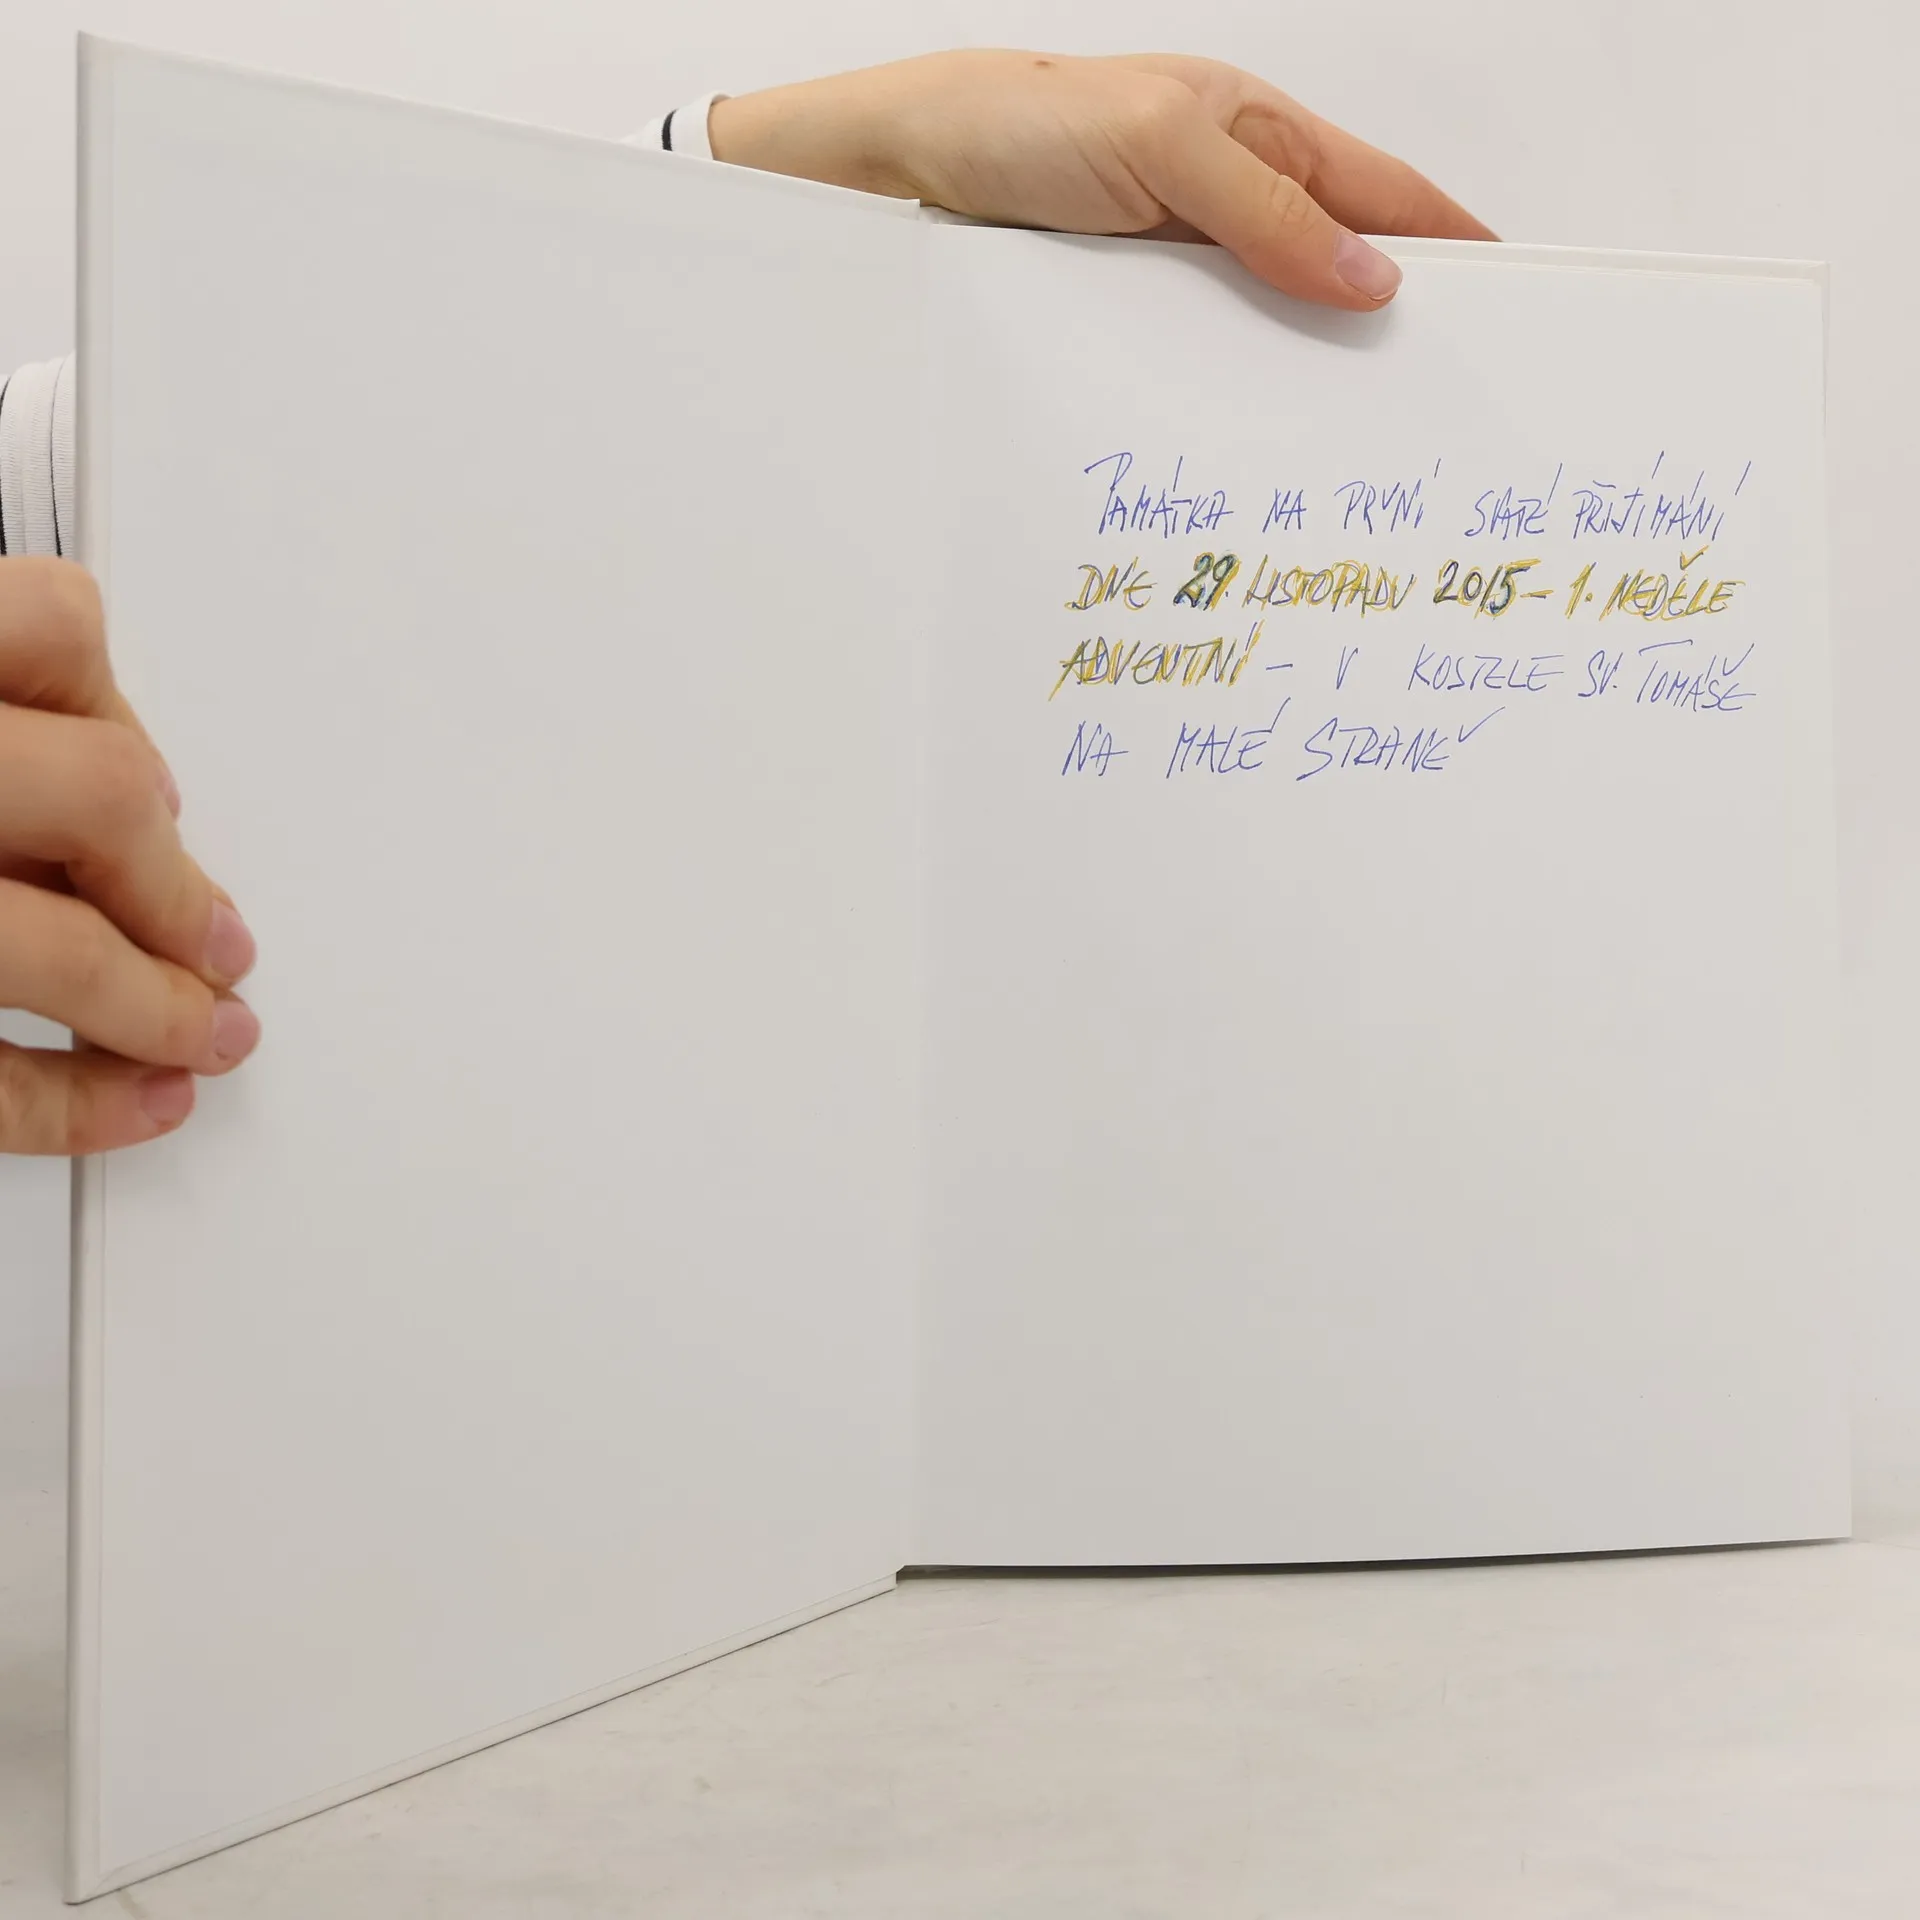 PAMÁTKA NA PRVNÍ SVATÉ PŘIJÍMÁNÍ
DNE 29. LISTOPADU 2015 – 1. NEDĚLE
ADVENTNÍ – V KOSTELE SV. TOMÁŠE
NA MALÉ STRANĚ